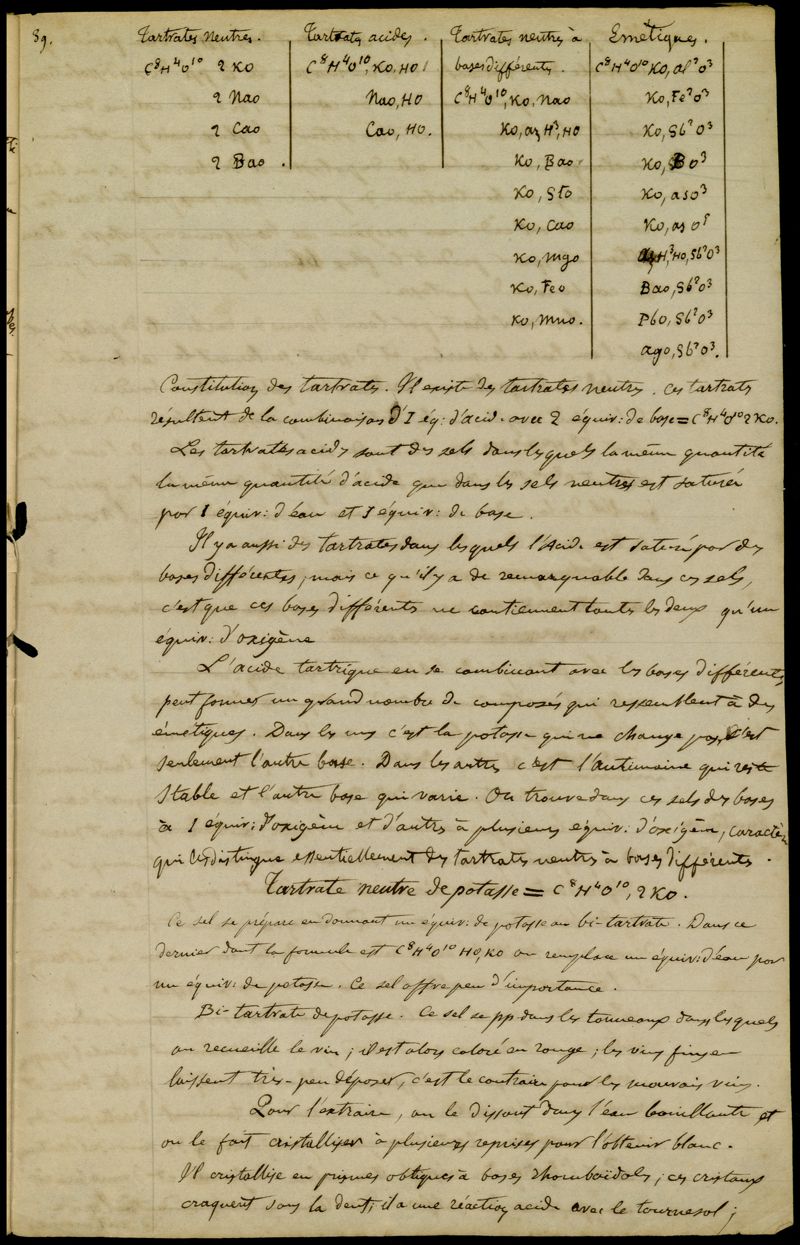 89.
Tartrates neutres. Tartrates acides. Tartrates neutres à Emétiques.
C⁸H⁴O¹⁰ 2 KO C⁸H⁴O¹⁰, KO, HO bases différents. C⁸H⁴O¹⁰ KO, al²O³
2 Nao Nao, HO C⁸H⁴O¹⁰, KO, Nao KO, Fe²O³
2 Cao Cao, HO. KO, azH³, HO KO, Sb²O³
2 Bao. KO, Bao KO, BO³
KO, Sto KO, aso³
KO, Cao KO, as o⁵
KO, mgo azH³, HO, Sb²O³
KO, Feo Bao, Sb²O³
KO, mno. Pbo, Sb²O³
ago, Sb²O³.
Constitution des tartrates. Il existe des tartrates neutres. Ces tartrats
résultent de la combinaison d'1 éq: d'acid. avec 2 équiv: de base = C⁸H⁴O¹⁰ 2 KO.
Les tartrates acides sont des sels dans lesquels la même quantité
la même quantité d'acide que dans les sels neutres est saturée
par 1 équiv: d'eau et 1 équiv: de base.
Il y a aussi des tartrates dans lesquels l'Acide est saturé par des
bases différentes, mais ce qu'il y a de remarquable dans ces sels,
c'est que ces bases différents ne contiennent toutes les deux qu'un
équiv: d'oxigène
L'acide tartrique en se combinant avec les bases différents
peut former un grand nombre de composés qui ressemblent à des
émétiques. Dans les uns c'est la potasse qui ne change pas, c'est
seulement l'autre base. Dans les autres c'est l'Antimoine qui reste
stable et l'autre base qui varie. On trouve dans ces sels des bases
à 1 équiv: d'oxigène et d'autres à plusieurs équiv: d'oxigène, caractère
qui les distingue essentiellement des tartrates neutres à bases différents.
Tartrate neutre de potasse = C⁸H⁴O¹⁰, 2 KO.
Ce sel se prépare en donnant un équiv: de potasse au bi-tartrate. Dans ce
dernier dont la formule est C⁸H⁴O¹⁰ HO, KO on remplace un équiv: d'eau par
un équiv: de potasse. Ce sel offre peu d'importance.
Bi-tartrate de potasse. Ce sel se pp dans les tonneaux dans lesquels
on recueille le vin; il est alors coloré en rouge; les vins fins en
laissent très-peu déposer, c'est le contraire pour les mauvais vins.
Pour l'extraire, on le dissout dans l'eau bouillante et
on le fait cristalliser à plusieurs reprises pour l'obtenir blanc.
Il cristallise en prismes obliques à bases rhomboïdals; ces cristaux
craquent sous la dent; il a une réaction acide avec le tournesol;